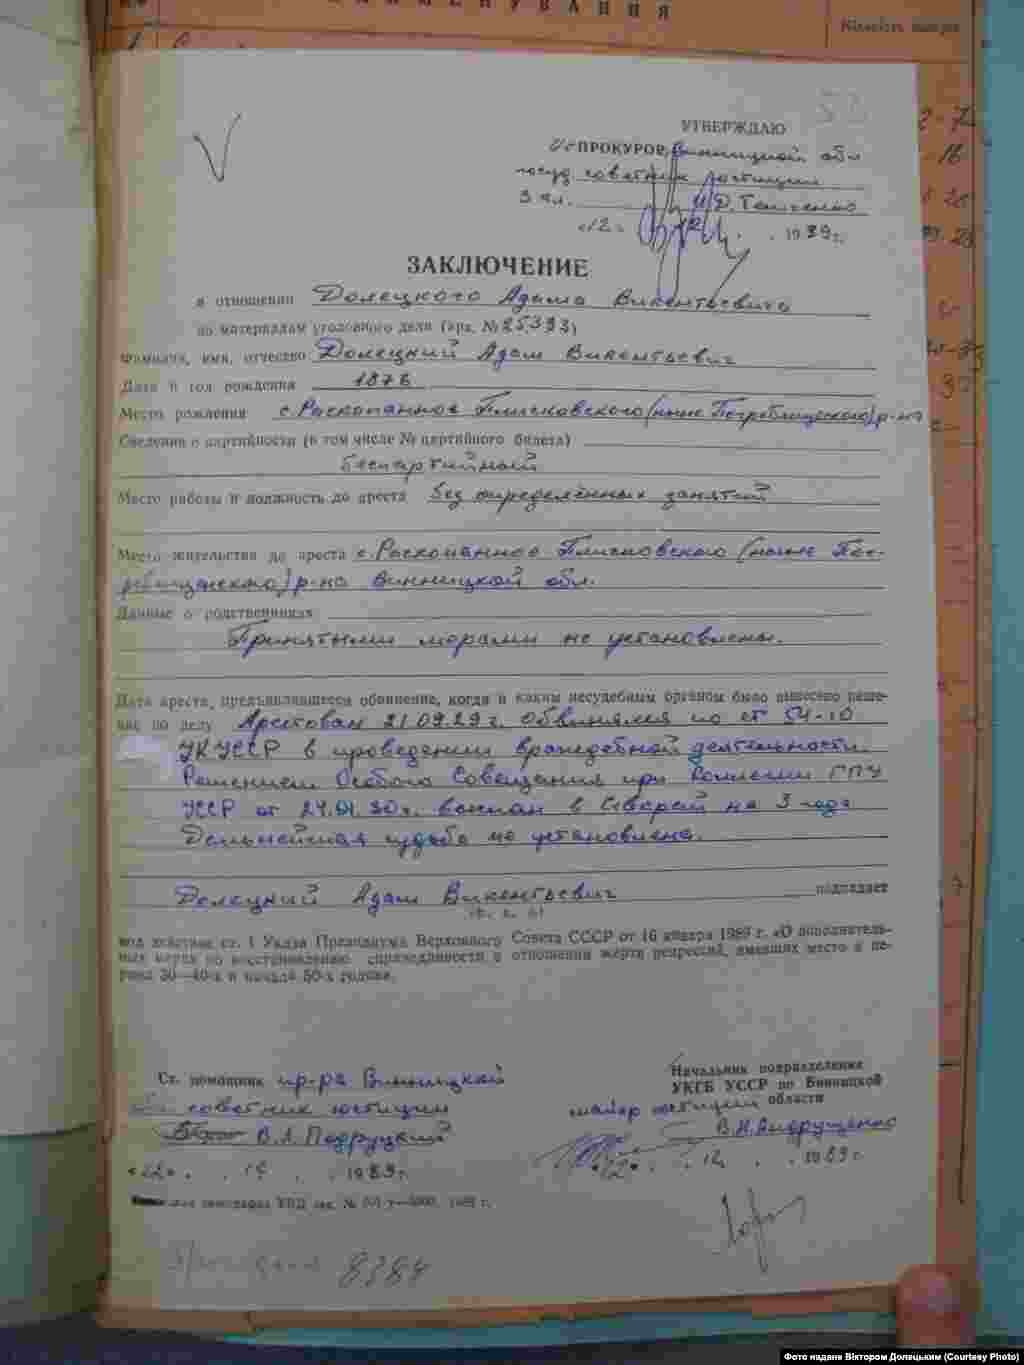 НАИМЕНУВАННЯ
53
УТВЕРЖДАЮ
ПРОКУРОР Винницкой обл
госуд советник юстиции
3 кл.
«12» 12. 1989 г.
ЗАКЛЮЧЕНИЕ
в отношении Долецкого Адама Викентьевича
по материалам уголовного дела (арх. № 25393)
Фамилия, имя, отчество Долецкий Адам Викентьевич
Дата и год рождения 1876
Место рождения с. Раскопанное Плисковского (ныне Погребищенского) р-на
Сведения о партийности (в том числе № партийного билета)
беспартийный
Место работы и должность до ареста без определённых занятий
Место жительства до ареста с. Раскопанное Плисковского (ныне Пог-
ребищенского) р-на Винницкой обл.
Данные о родственниках
Принятыми мерами не установлены.
Дата ареста, предъявлявшееся обвинение, когда и каким несудебным органом было вынесено реше-
ние по делу Арестован 21.09.29 г. Обвинялся по ст 54-10
УК УССР в проведении враждебной деятельности.
Решением Особого Совещания при Коллегии ГПУ
УССР от 24.01.30 г. выслан в Сибирь на 3 года
Дальнейшая судьба не установлена.
Долецкий Адам Викентьевич подпадает
(ф. и. о.)
под действие ст. 1 Указа Президиума Верховного Совета СССР от 16 января 1989 г. «О дополнитель-
ных мерах по восстановлению справедливости в отношении жертв репрессий, имевших место в пе-
риод 30—40-х и начала 50-х годов».
Ст. помощник пр-ра Винницкой
обл советник юстиции
В.А. Подруцкий
«12». 12. 1989 г.
Начальник подразделения
УКГБ УССР по Винницкой
области
майор юстиции
В.Н. Андрущенко
«12». 12. 1989 г.
8384
Фото надане Віктором Долецьким (Courtesy Photo)